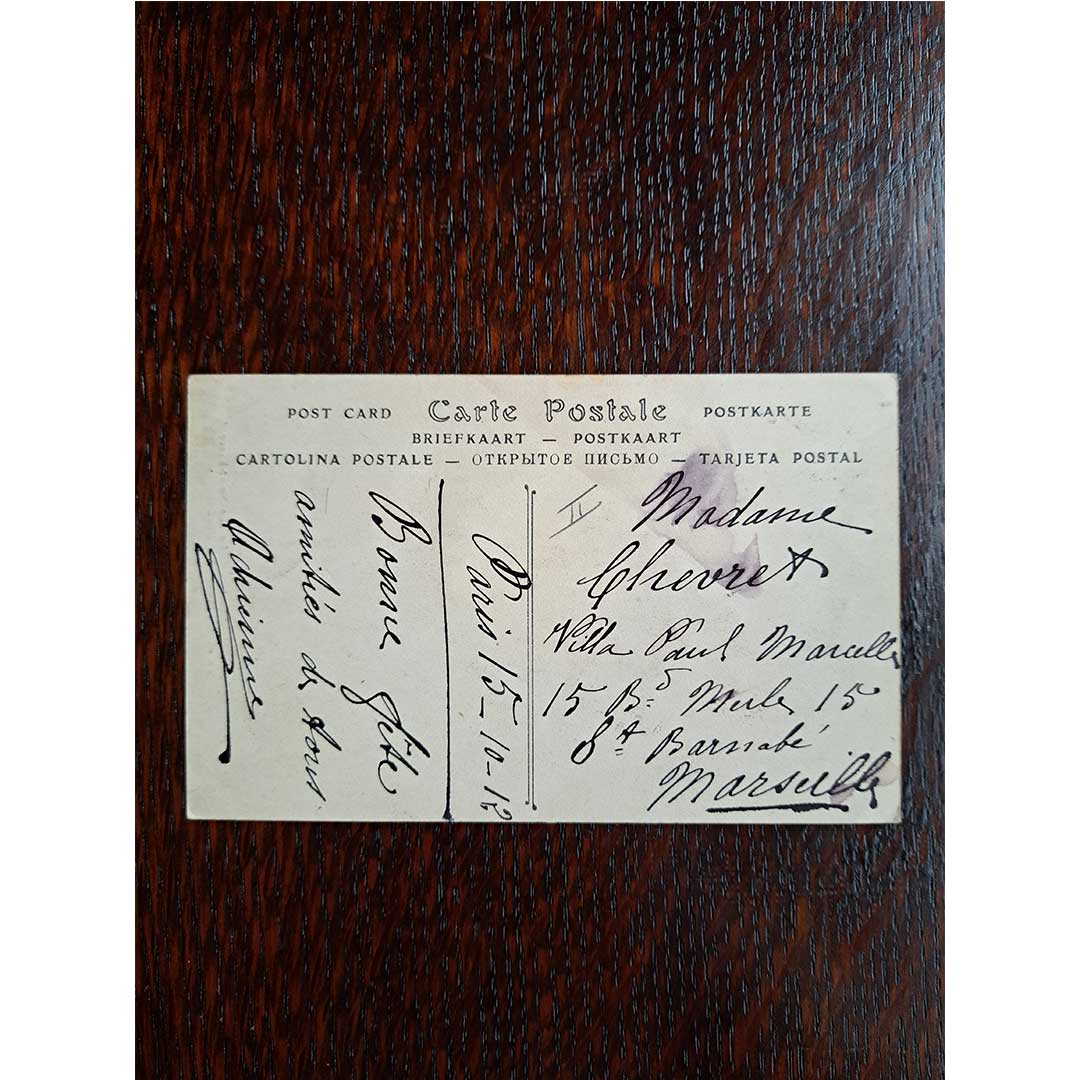 POST CARD Carte Postale POSTKARTE
BRIEFKAART — POSTKAART
CARTOLINA POSTALE — ОТКРЫТОЕ ПИСЬМО — TARJETA POSTAL
Paris 15-10-12
Bonne fête
amitiés de tous
Adrienne
II
Madame
Chevret
Villa Paul Marcelle
15 Bd Merle 15
St Barnabé
Marseille